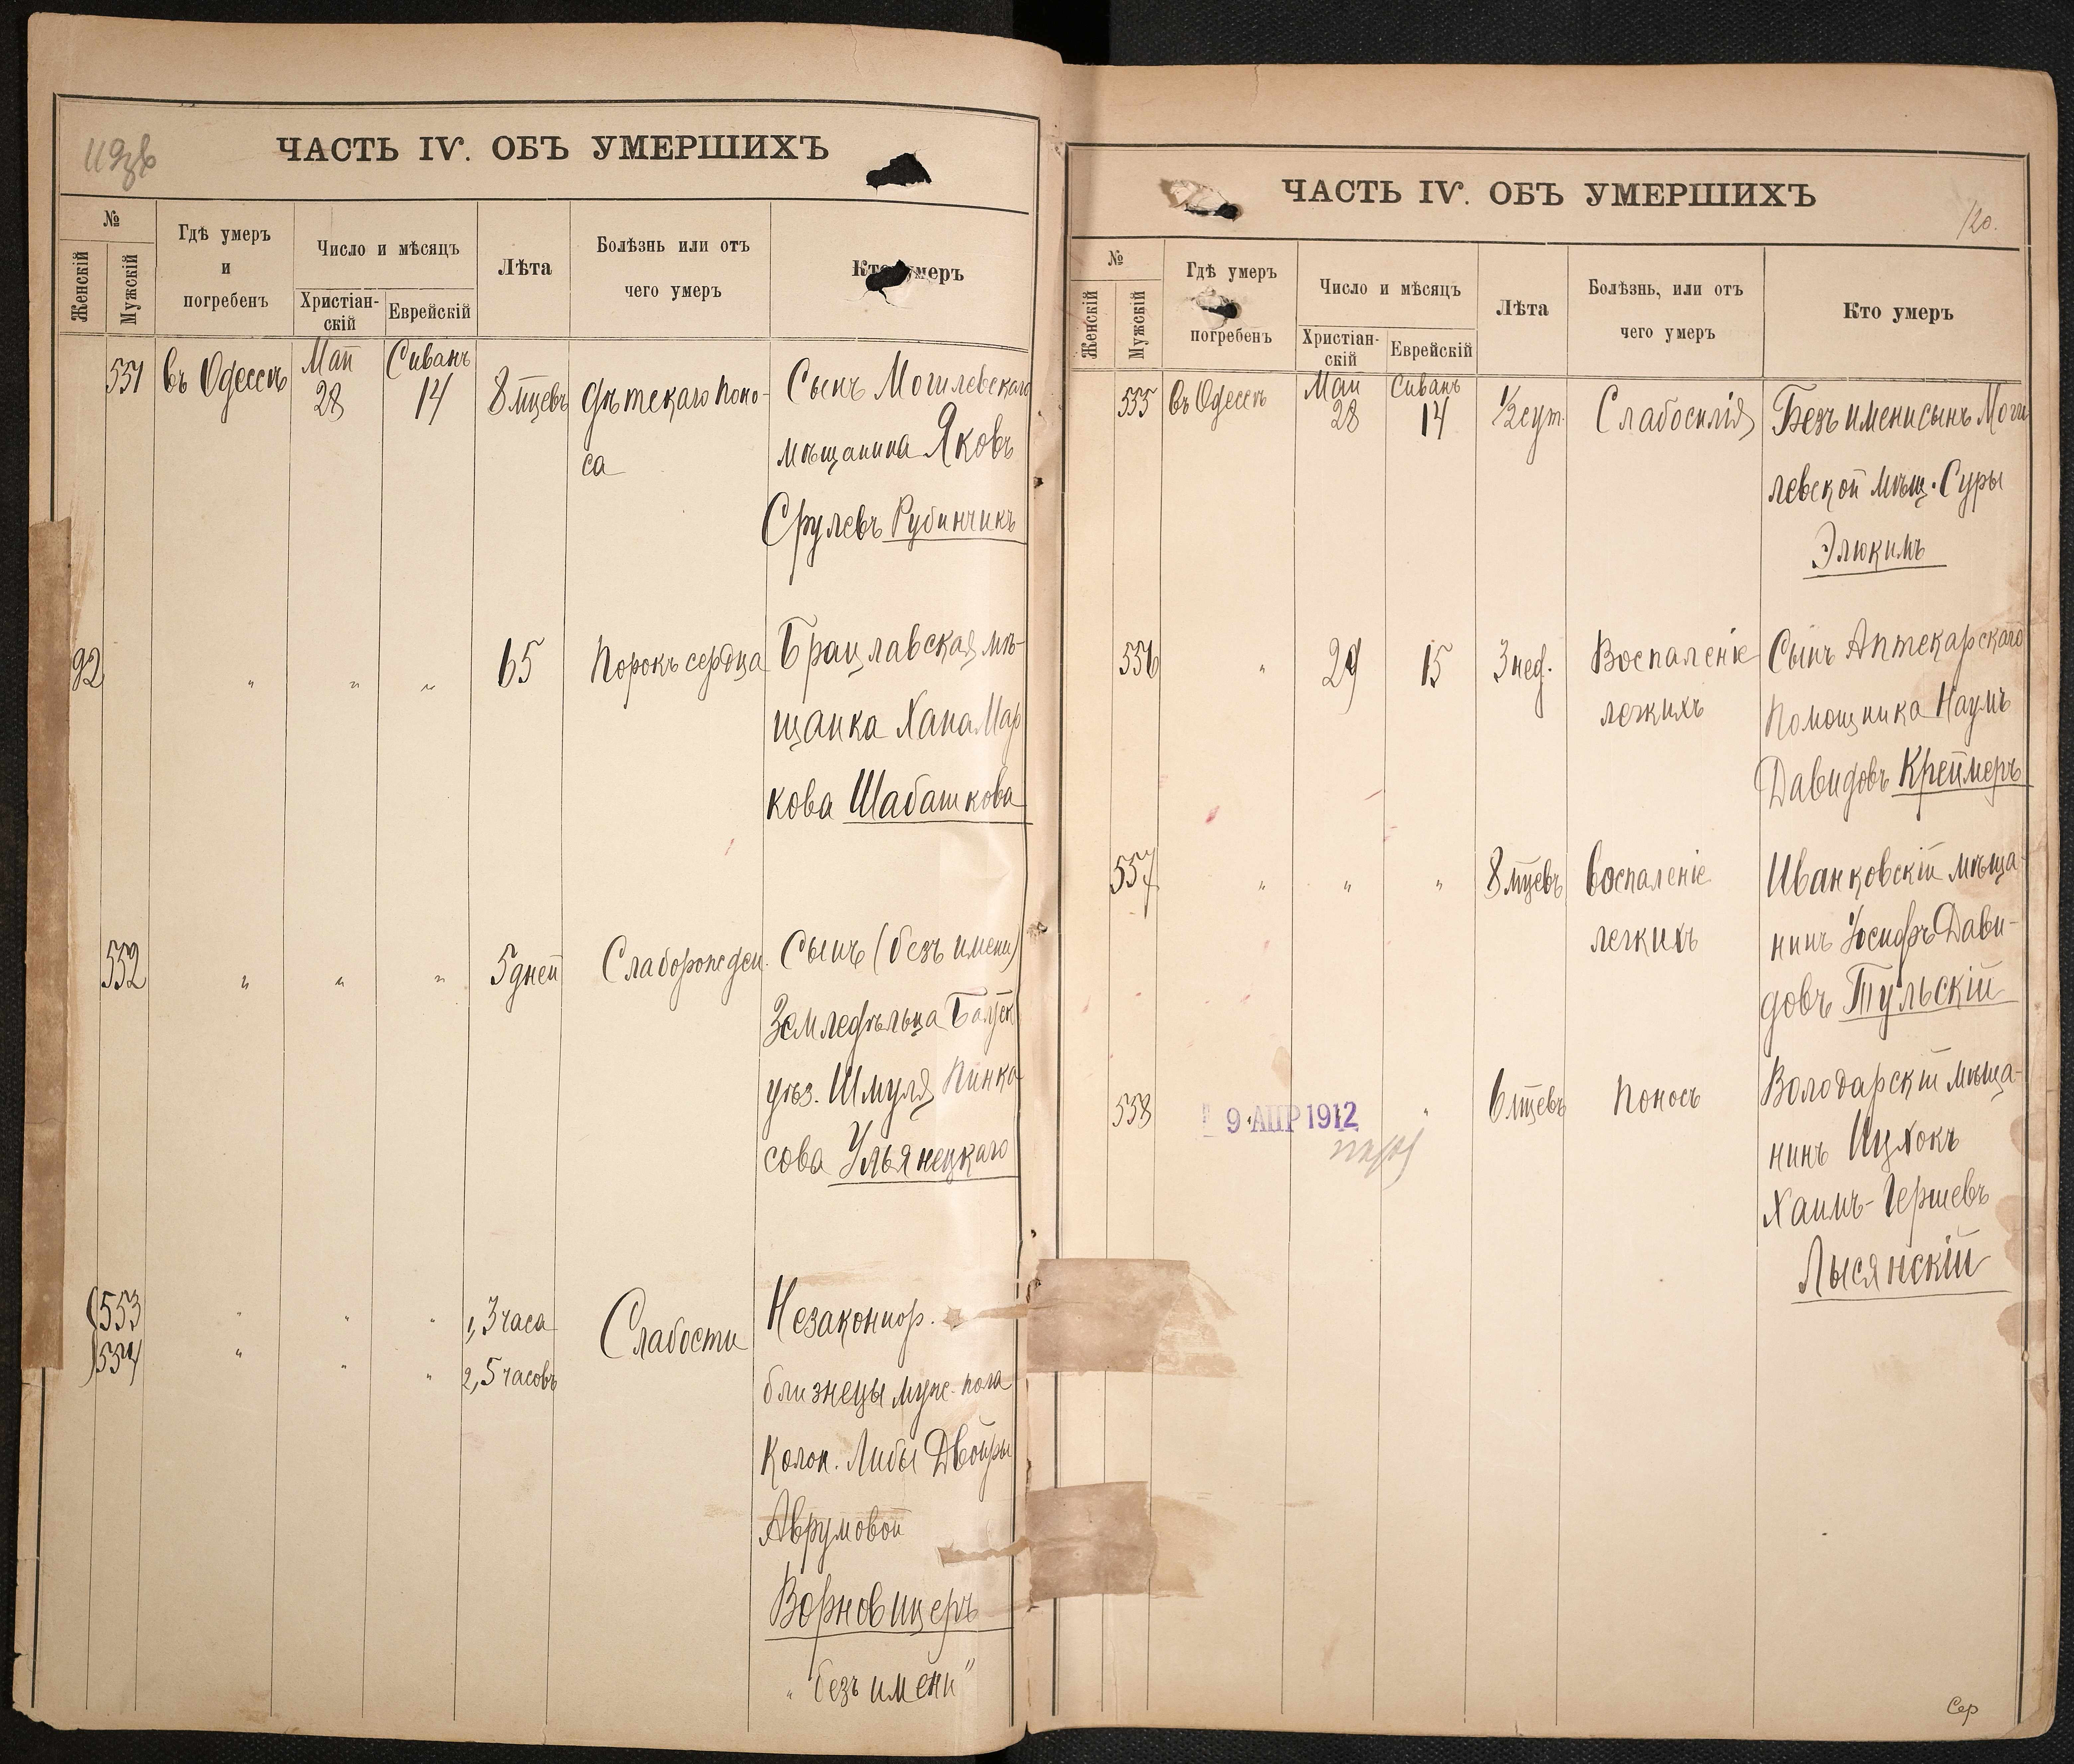 ЧАСТЬ IV. ОБЪ УМЕРШИХЪ
№
Женскій
Мужскій
Гдѣ умеръ
и
погребенъ
Число и мѣсяцъ
Христіан-
скій
Еврейскій
Лѣта
Болѣзнь или отъ
чего умеръ
Кто умеръ
551 въ Одессѣ Май 28 Сиванъ 14 8 мцевъ дѣтскаго поно-
са
Сынъ Могилевскаго
мѣщанина Яковъ
Срулевъ Рубинчикъ
92 " " " 65 Порокъ сердца Брацлавская мѣ-
щанка Хана Мар
кова Шабашкова
552 " " " 5 дней Слаборожден. Сынъ (безъ имени)
Земледѣльца
уѣз. Шмуля Пинка
сова Ульянецкаго
553 " " " 1, 3 часа
554 " " " 2, 5 часовъ
Слабости
Незаконнор.
близнецы муж. пола
колон. Либы Двойры
Аврумовой
Ворновицеръ
"безъ имени"
ЧАСТЬ IV. ОБЪ УМЕРШИХЪ
120.
№
Женскій
Мужскій
Гдѣ умеръ
погребенъ
Число и мѣсяцъ
Христіан-
скій
Еврейскій
Лѣта
Болѣзнь, или отъ
чего умеръ
Кто умеръ
555 Въ Одессѣ Май 28 Сиванъ 14 1/2 сут. Слабосилія Безъ имени сынъ Моги
левской мѣщ. Суры
Элюкимъ
556 " 29 15 3 нед. Воспаленіе
легкихъ
Сынъ Аптекарскаго
Помощника Наумъ
Давидовъ Креймеръ
557 " " " 8 мцевъ Воспаленіе
легкихъ
Иванковскій мѣща-
нинъ Іосифъ Дави-
довъ Тульскій
558 9 АПР 1912 " 6 мцевъ Поносъ Володарскій мѣща-
нинъ Ицхокъ
Хаимъ-Гершевъ
Лысянскій
Сер